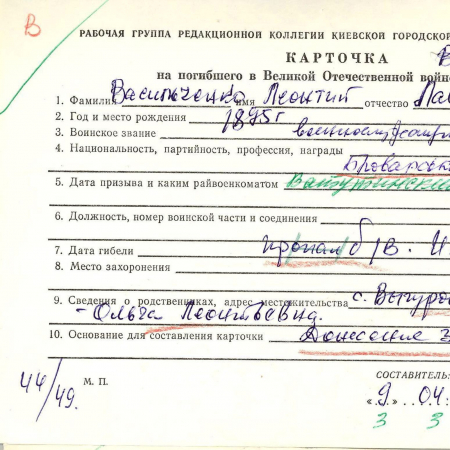 В
РАБОЧАЯ ГРУППА РЕДАКЦИОННОЙ КОЛЛЕГИИ КИЕВСКОЙ ГОРОДСКОЙ
КАРТОЧКА В
на погибшего в Великой Отечественной войне
1. Фамилия Васильченко имя Леонтий отчество Пав
2. Год и место рождения 1895 г
3. Воинское звание военнослужащ
4. Национальность, партийность, профессия, награды
Броварськ
5. Дата призыва и каким райвоенкоматом Ватутинским
6. Должность, номер воинской части и соединения
7. Дата гибели пропал б/в.
8. Место захоронения
9. Сведения о родственниках, адрес местожительства с. Выгуро
- Ольга Леонтьевна.
10. Основание для составления карточки Донесение 3
44/49.
М. П.
СОСТАВИТЕЛЬ:
«9» 04.
3 3